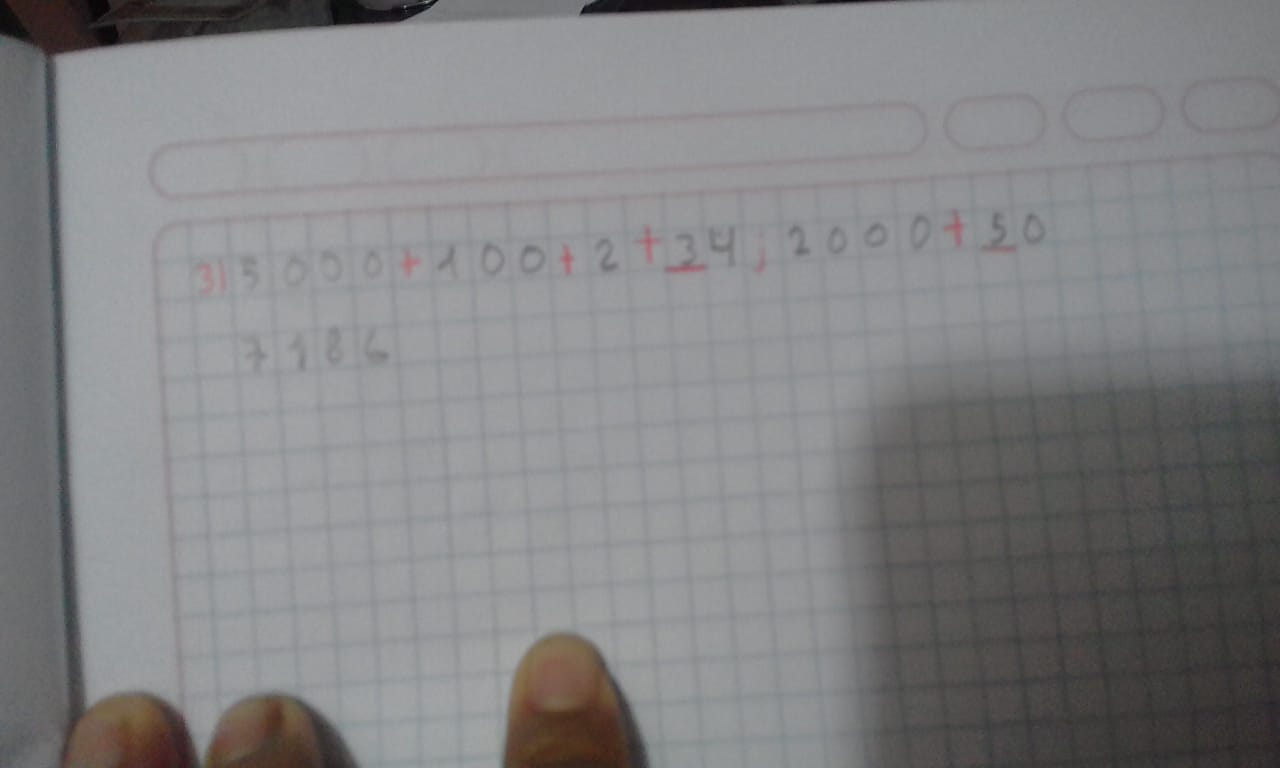 3) 5000+100+2+34; 2000+50
7186